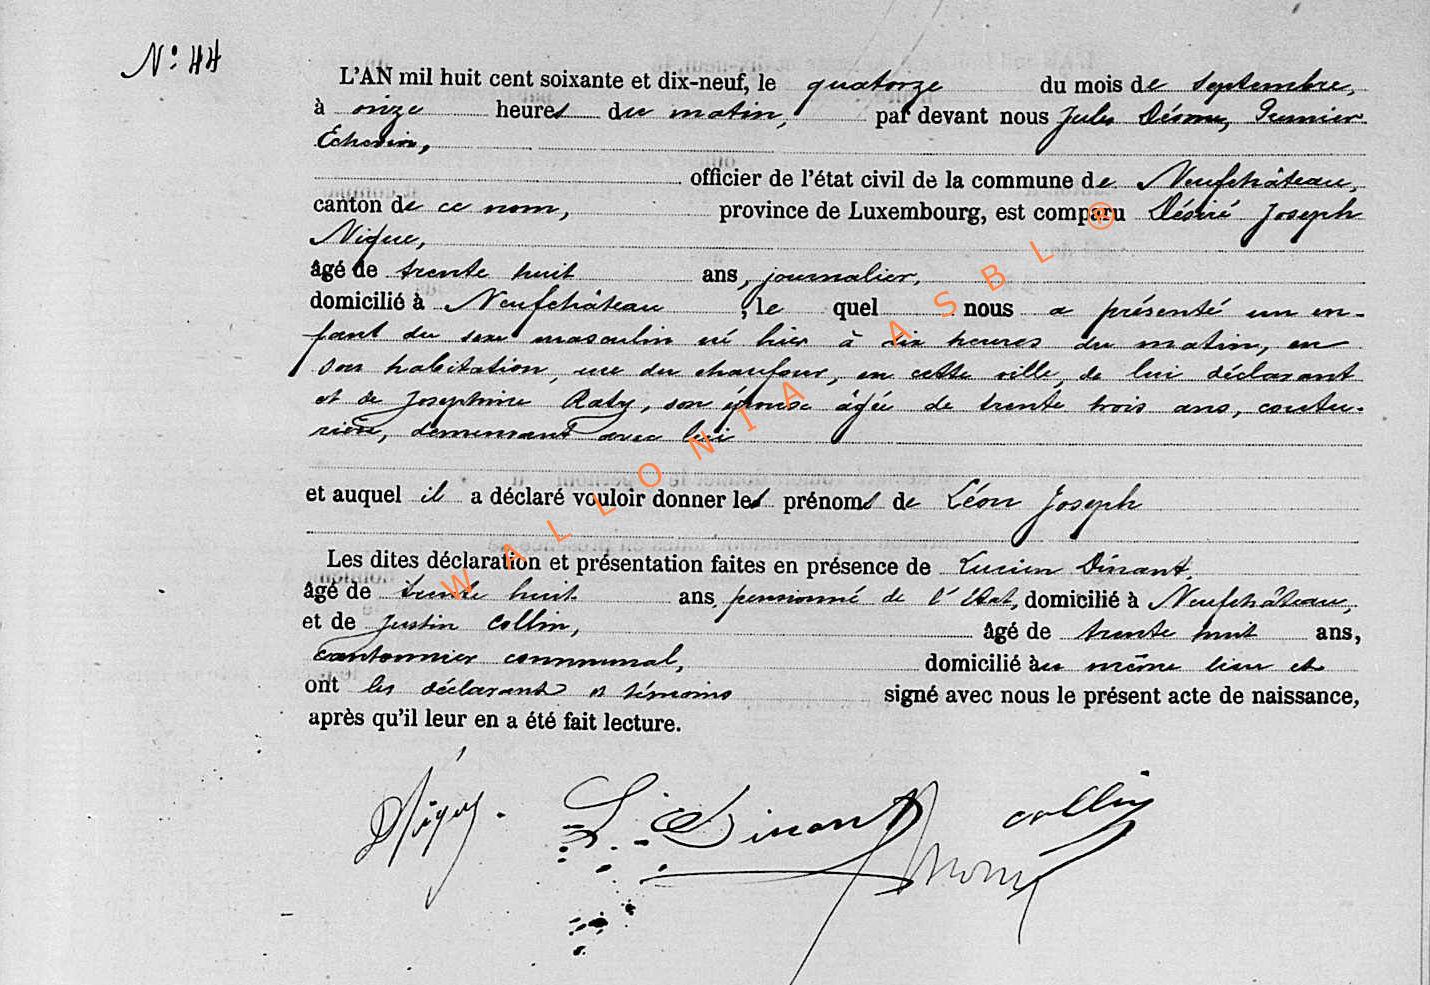 N° 44
L'AN mil huit cent soixante et dix-neuf, le quatorze du mois de septembre,
à onze heures du matin, par devant nous Jules Premier
Echevin,
officier de l'état civil de la commune de Neufchâteau,
canton de ce nom, province de Luxembourg, est comparu Désiré Joseph
Nique,
âgé de trente huit ans, journalier,
domicilié à Neufchâteau, le quel nous a présenté un en-
fant du sexe masculin né hier à dix heures du matin, en
son habitation, rue du chaufour, en cette ville, de lui déclarant
et de Joséphine Raty, son épouse âgée de trente trois ans, coutu-
rière, demeurant avec lui
et auquel il a déclaré vouloir donner les prénoms de Léon Joseph
Les dites déclaration et présentation faites en présence de Lucien Dinant,
âgé de trente huit ans, pensionné de l'Etat, domicilié à Neufchâteau,
et de Justin Collin, âgé de trente huit ans,
cantonnier communal, domicilié au même lieu et
ont les déclarant et témoins signé avec nous le présent acte de naissance,
après qu'il leur en a été fait lecture.
L. Dinant
Collin
WALLONIA ASBL ®